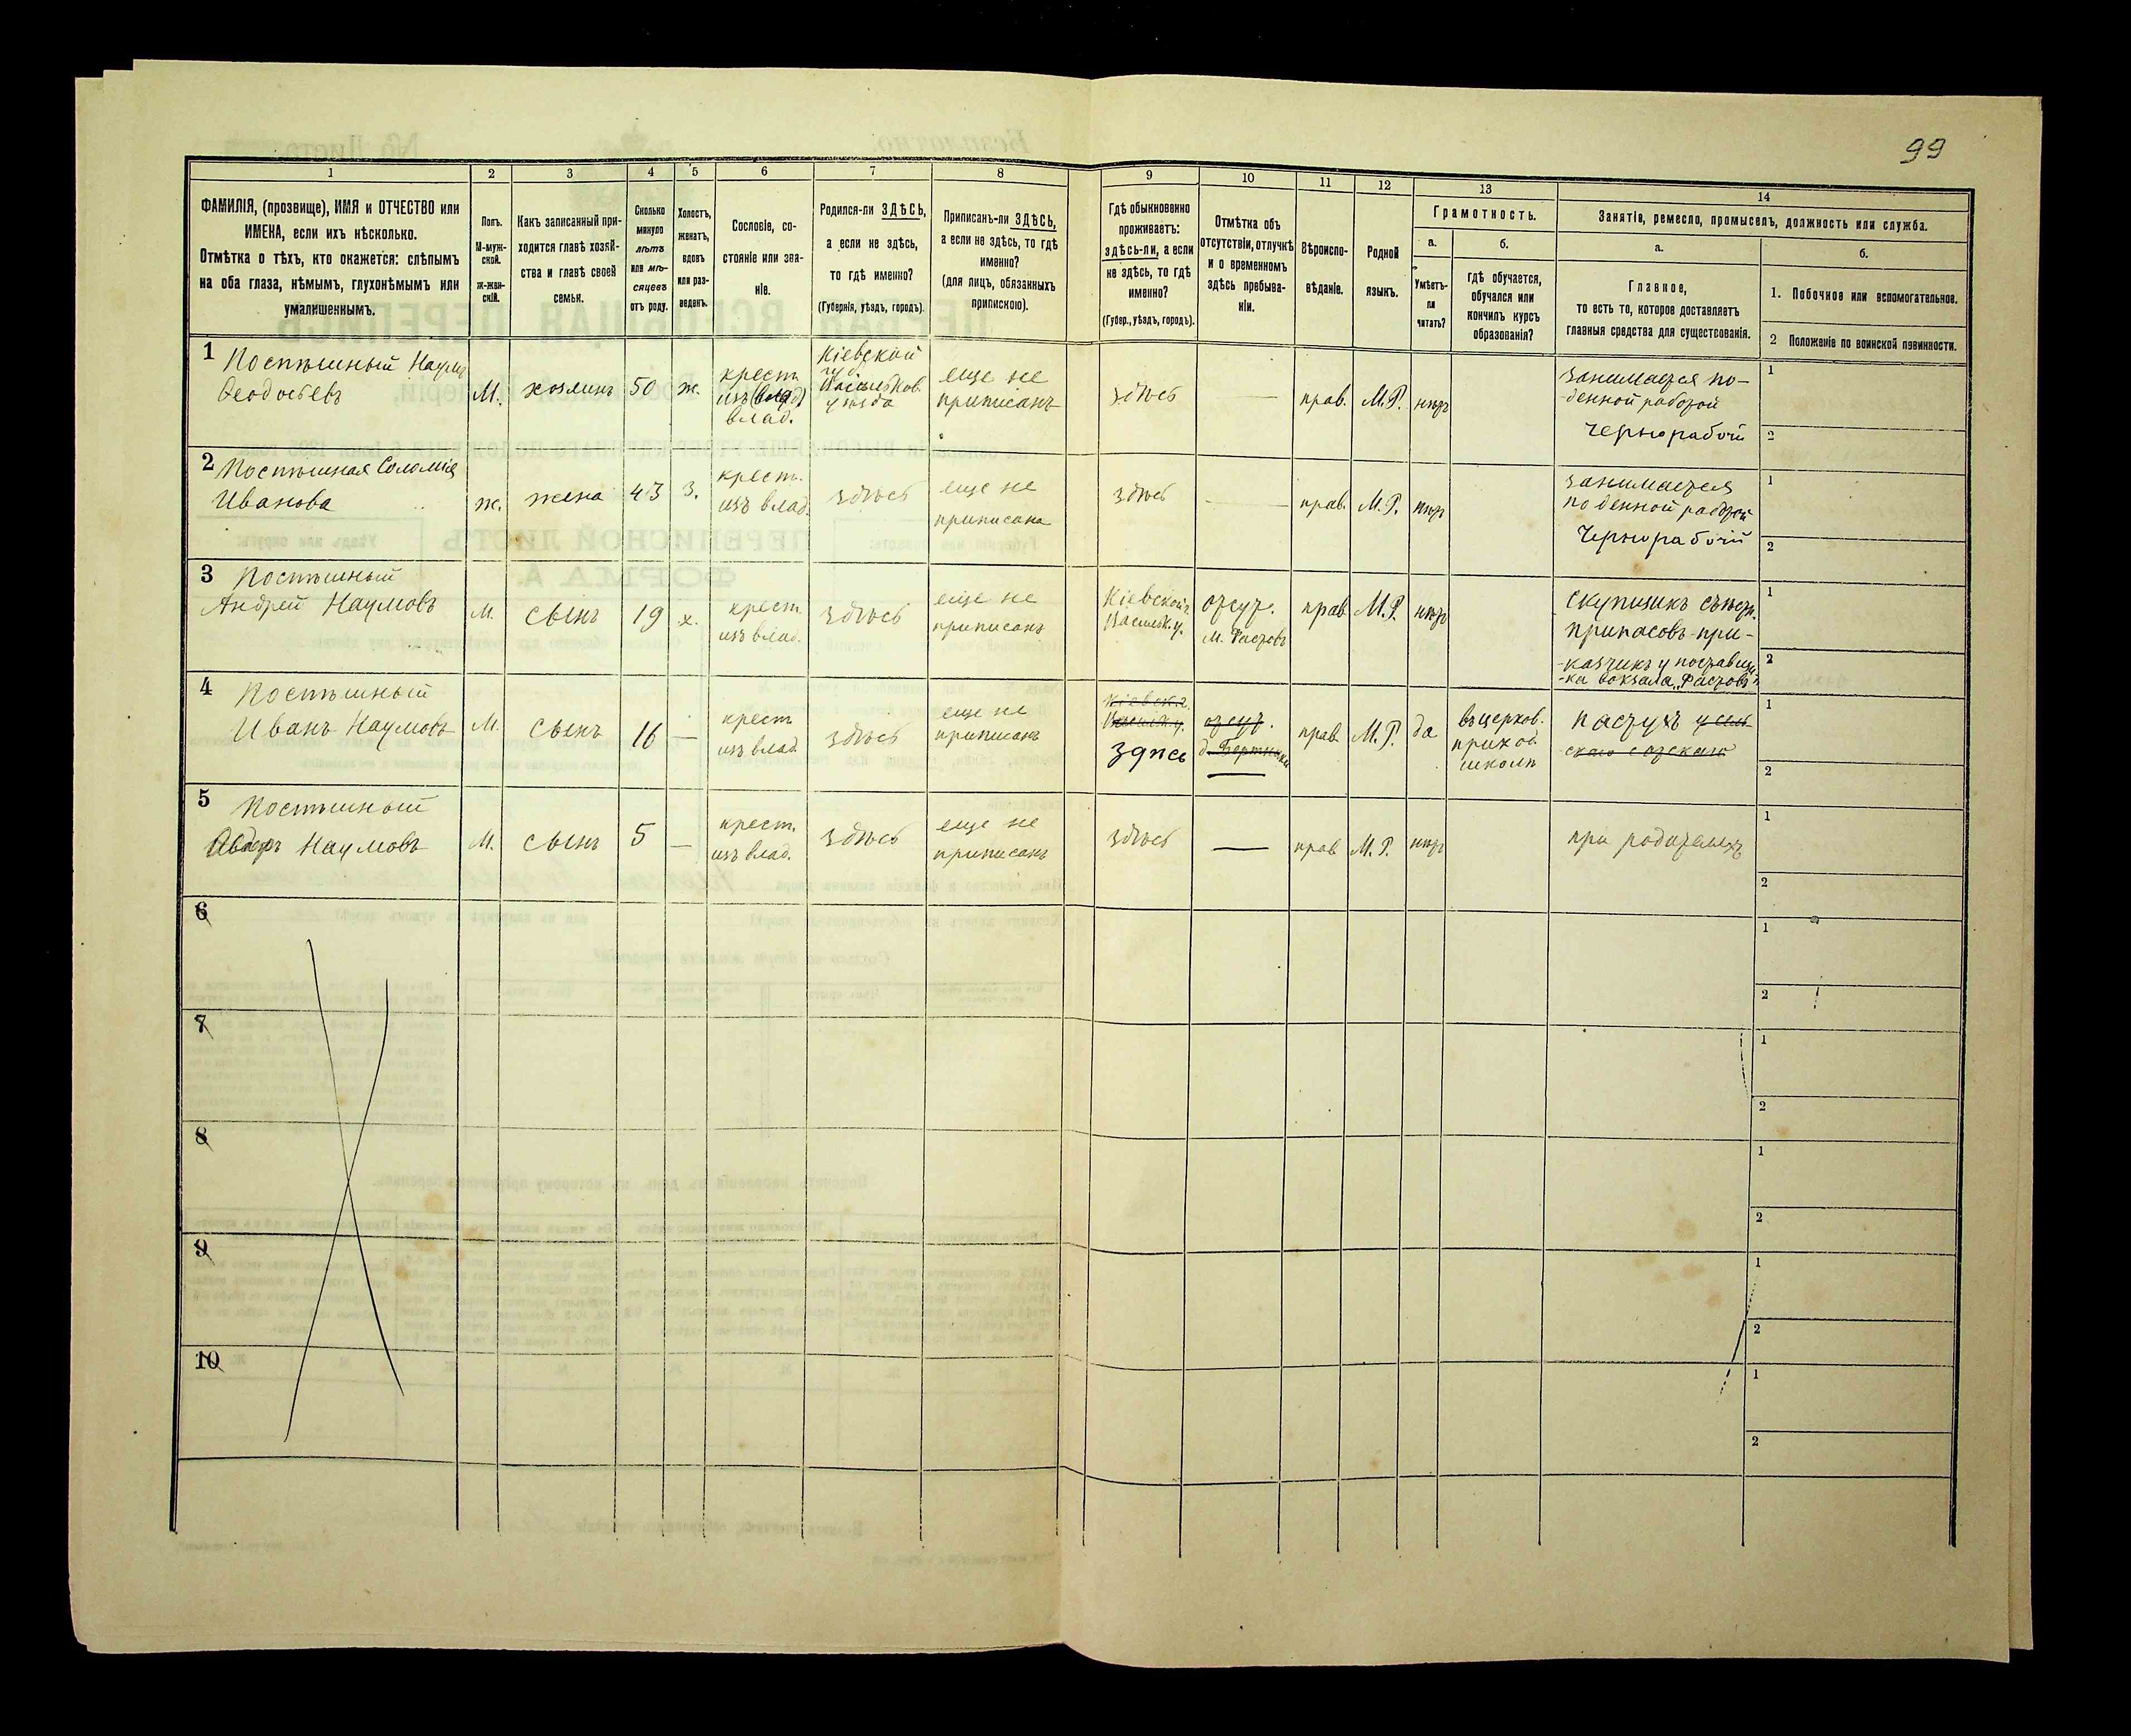 99
1 2 3 4 5 6 7 8 9 10 11 12 13 14
ФАМИЛІЯ, (прозвище), ИМЯ и ОТЧЕСТВО или
ИМЕНА, если ихъ нѣсколько.
Отмѣтка о тѣхъ, кто окажется: слѣпымъ
на оба глаза, нѣмымъ, глухонѣмымъ или
умалишеннымъ.
Полъ.
М-муж-
ской.
Ж-жен-
скій.
Какъ записанный при-
ходится главѣ хозяй-
ства и главѣ своей
семьи.
Сколько
минуло
лѣтъ
или мѣ-
сяцевъ
отъ роду.
Холостъ,
женатъ,
вдовъ
или раз-
веденъ.
Сословіе, со-
стояніе или зва-
ніе.
Родился-ли ЗДѢСЬ,
а если не здѣсь,
то гдѣ именно?
(Губернія, уѣздъ, городъ).
Приписанъ-ли ЗДѢСЬ,
а если не здѣсь, то гдѣ
именно?
(для лицъ, обязанныхъ
припискою).
Гдѣ обыкновенно
проживаетъ:
здѣсь-ли, а если
не здѣсь, то гдѣ
именно?
(Губер., уѣздъ, городъ).
Отмѣтка объ
отсутствіи, отлучкѣ
и о временномъ
здѣсь пребыва-
ніи.
Вѣроиспо-
вѣданіе.
Родной
языкъ.
Грамотность.
а.
Умѣетъ-
ли
читать?
б.
гдѣ обучается,
обучался или
кончилъ курсъ
образованія?
Занятіе, ремесло, промыселъ, должность или служба.
а.
Главное,
то есть то, которое доставляетъ
главныя средства для существованія.
б.
1. Побочное или вспомогательное.
2 Положеніе по воинской повинности.
1 Поспѣшный Наумъ
Феодосьевъ
М.
хозяинъ
50
ж.
крест.
изъ (влад)
влад.
Кіевской
губ.
Васильков.
уѣзда
еще не
приписанъ
здѣсь
—
прав.
М.Р.
нѣтъ
занимается по-
денной работой
Чернорабочій
1
2
2 Поспѣшная Соломія
Иванова
ж.
жена
43
з.
крест.
изъ влад.
здѣсь
еще не
приписана
здѣсь
—
прав.
М.Р.
нѣтъ
занимается
поденной работой
Чернорабочій
1
2
3 Поспѣшный
Андрей Наумовъ
М.
сынъ
19
х.
крест.
изъ влад.
здѣсь
еще не
приписанъ
Кіевской г.
Васильк. у.
отсут.
м. Фастовъ
прав.
М.Р.
нѣтъ
скупщикъ съѣст.
припасовъ-при-
-казчикъ у поставщи-
-ка вокзала „Фастовъ"
1
2
4 Поспѣшный
Иванъ Наумовъ
М.
сынъ
16
—
крест
изъ влад
здѣсь
еще не
приписанъ
Кіевск. г.
Васильк. у.
здѣсь
отсут.
—
прав.
М.Р.
да
въ церков.
приход.
школѣ
пастухъ
1
2
5 Поспѣшный
Наумовъ
М.
сынъ
5
—
крест.
изъ влад.
здѣсь
еще не
приписанъ
здѣсь
—
прав
М.Р.
нѣтъ
при родителяхъ
1
2
6
1
2
7
1
2
8
1
2
9
1
2
10
1
2